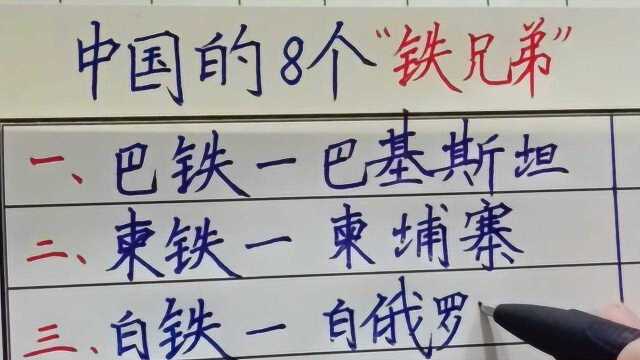 中国的8个“铁兄弟”
一、巴铁一巴基斯坦
二、柬铁一柬埔寨
三、白铁一白俄罗